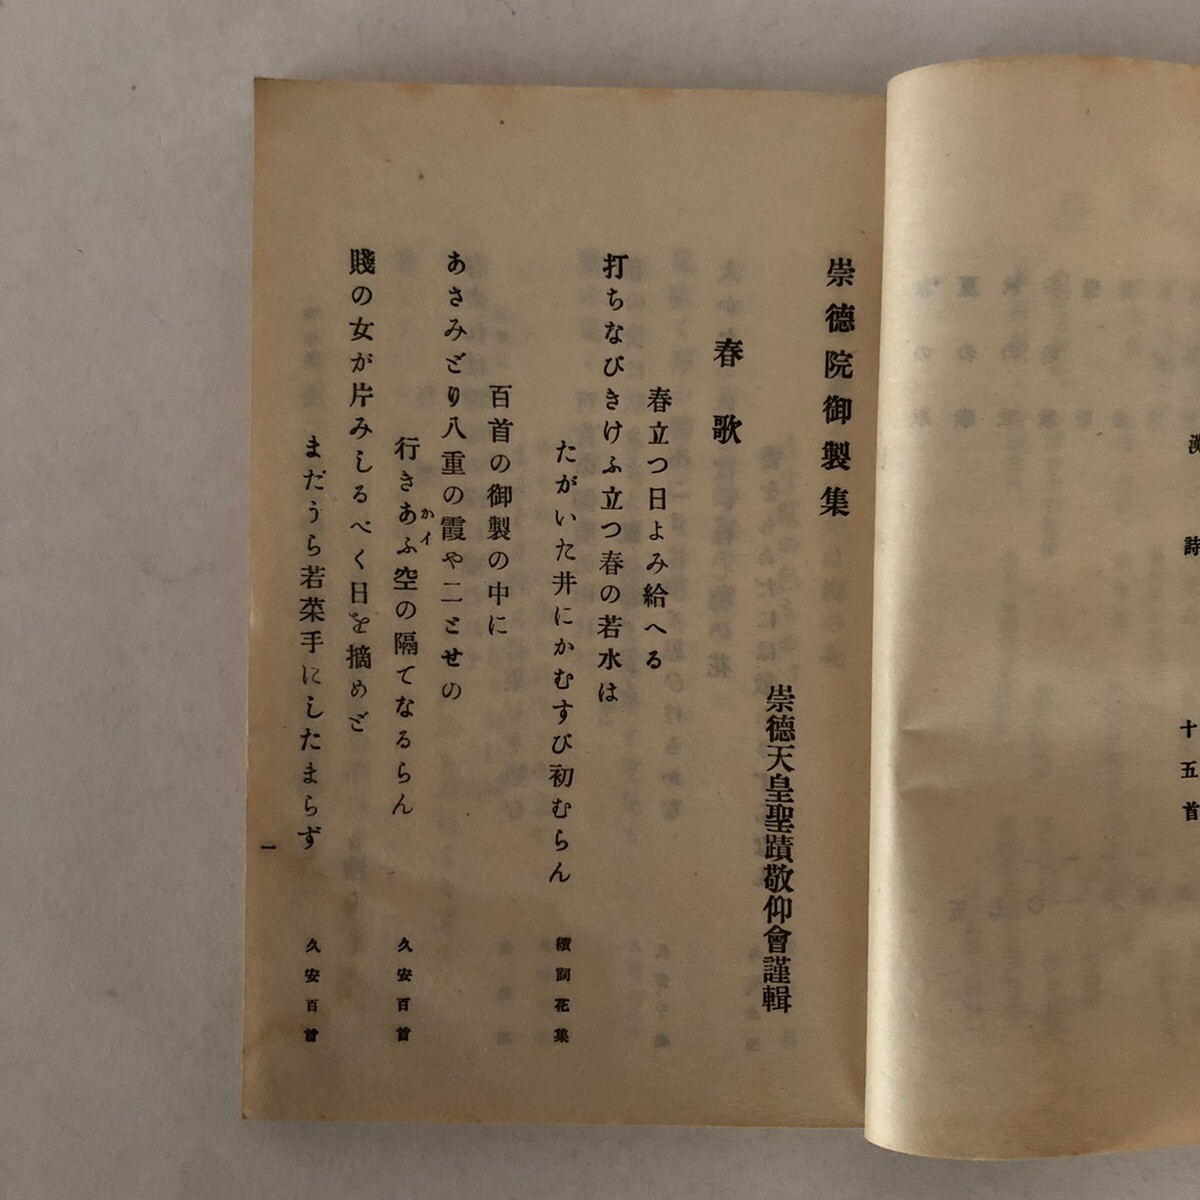 漢詩　十五首
崇德院御製集
崇德天皇聖蹟敬仰會謹輯
春歌
春立つ日よみ給へる
打ちなびきけふ立つ春の若水は
たがいた井にかむすび初むらん　續詞花集
百首の御製の中に
あさみどり八重の霞や二とせの
行きあふ空の隔てなるらん　久安百首
かイ
賤の女が片みしるべく日を摘めど
まだうら若菜手にしたまらず　久安百首
一